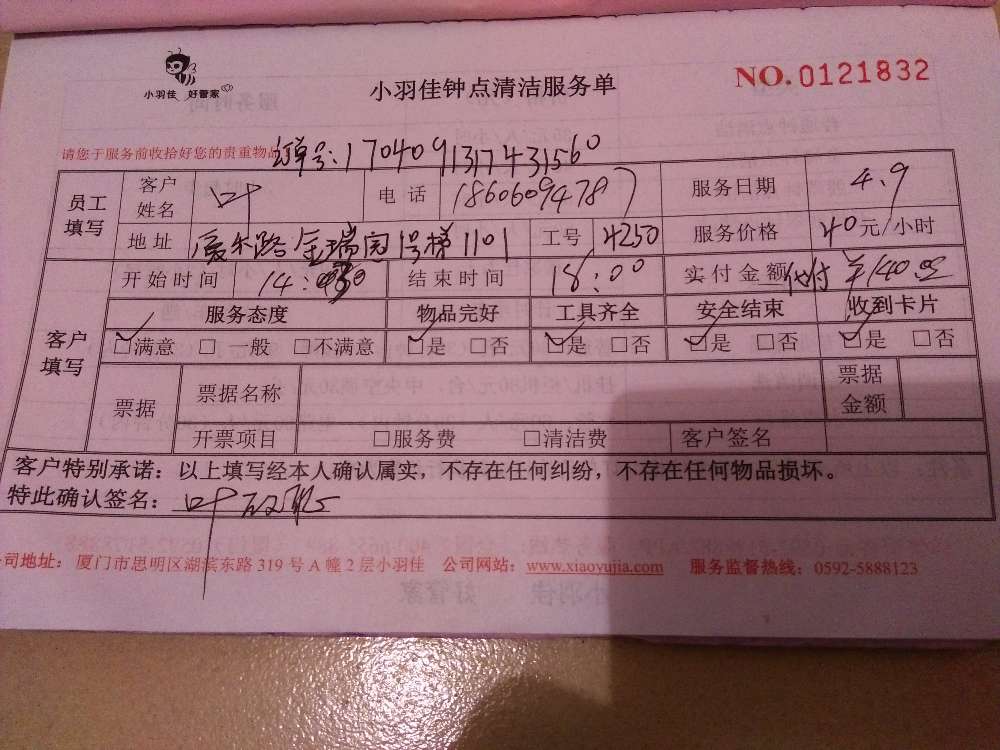 小羽佳 好管家
小羽佳钟点清洁服务单
NO. 0121832
请您于服务前收拾好您的贵重物品
单号:1704091317431560
员工填写 客户姓名 叶 电话 18606094787 服务日期 4.9
地址 金瑞园1号梯1101 工号 4250 服务价格 40元/小时
客户填写 开始时间 14: 结束时间 18:00 实付金额 代付 ¥140.00
服务态度 物品完好 工具齐全 安全结束 收到卡片
☑满意 □一般 □不满意 ☑是 □否 ☑是 □否 ☑是 □否 ☑是 □否
票据 票据名称 票据金额
开票项目 □服务费 □清洁费 客户签名
客户特别承诺:以上填写经本人确认属实,不存在任何纠纷,不存在任何物品损坏。
特此确认签名:叶
司地址:厦门市思明区湖滨东路319号A幢2层小羽佳 公司网站:www.xiaoyujia.com 服务监督热线:0592-5888123